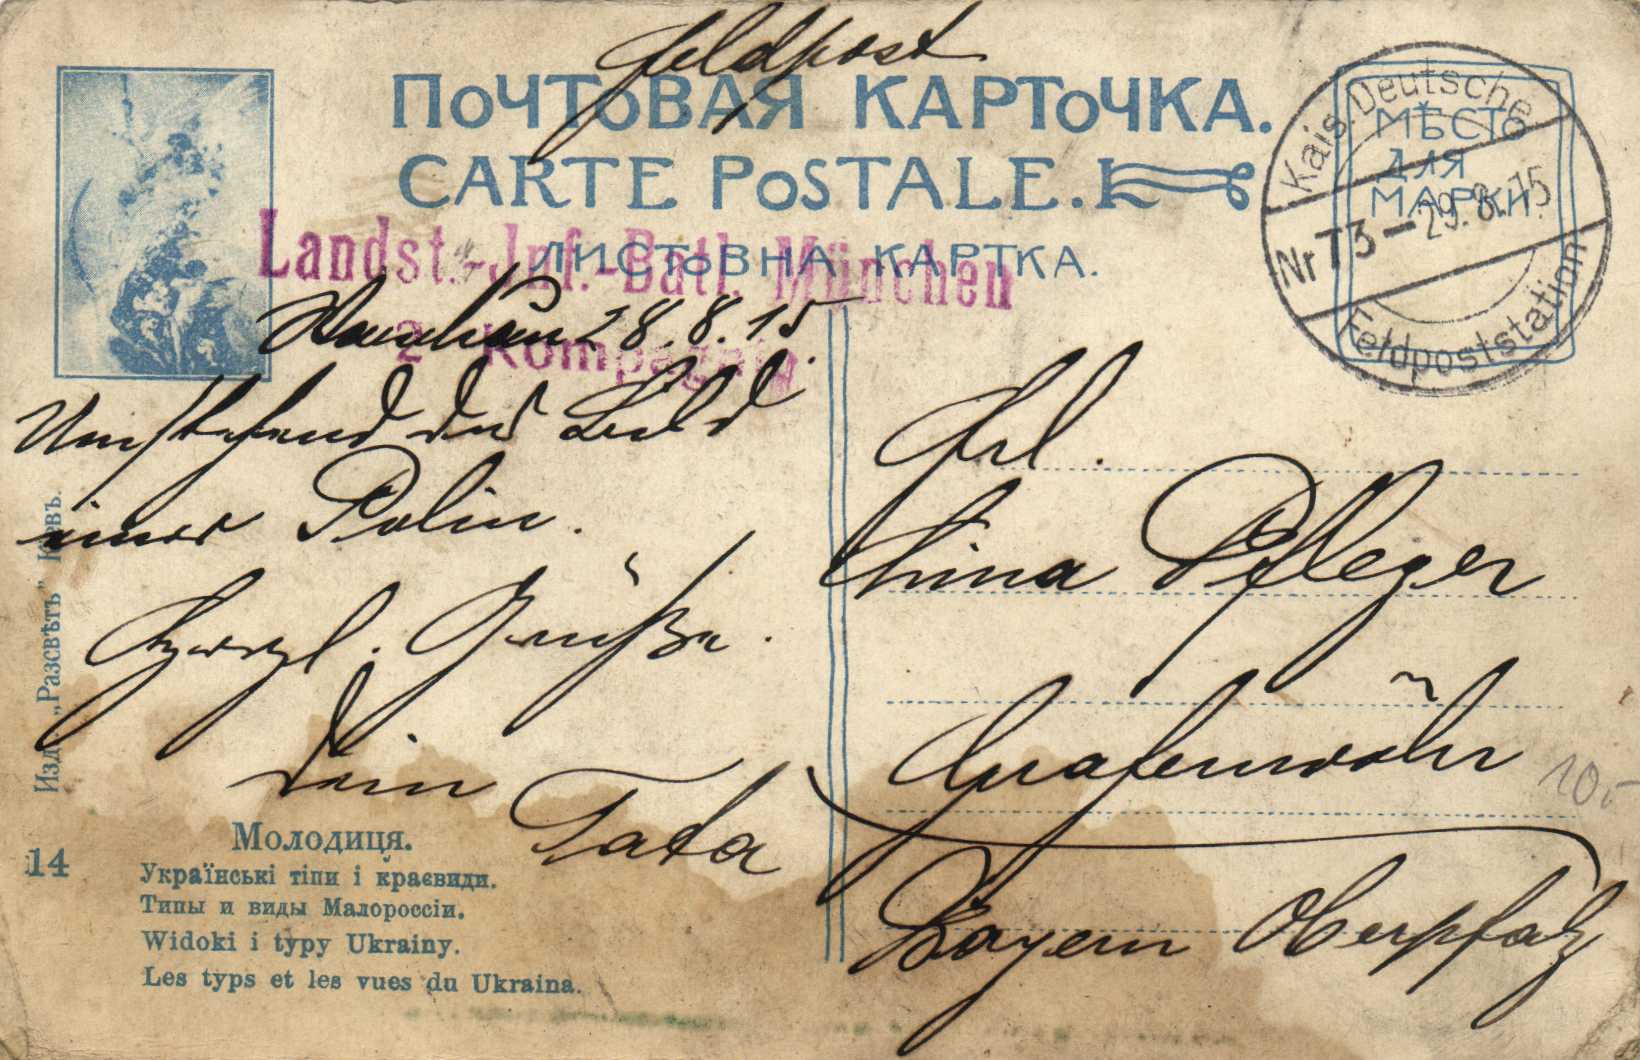 Feldpost
ПОЧТОВАЯ КАРТОЧКА.
CARTE POSTALE.
ЛИСТОВНА КАРТКА.
МѢСТО
ДЛЯ
МАРКИ.
Kais. Deutsche
Nr 73 - 29.8.15
Feldpoststation
Landst.-Inf.-Batl. München
2. Kompagnie
28.8.15.
Umstehend das Bild
einer Polin.
Herzl. Grüße.
Dein
Tata
Frl.
China Pfleger
Grafenwöhr
Bayern Oberpfalz
10.-
Изд. „Разсвѣтъ” Кіевъ.
14
Молодиця.
Українські тіпи і краєвиди.
Типы и виды Малороссіи.
Widoki i typy Ukrainy.
Les typs et les vues du Ukraina.